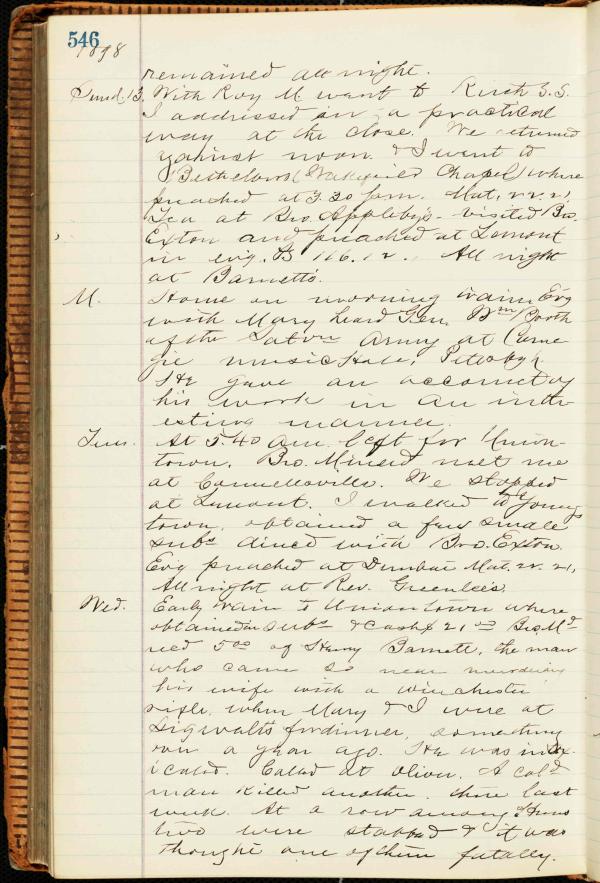 546
1898
remained all night.
Sund. 13. With Roy M. went to S.S.
I addressed in a practical
way at the close. We returned
against noon. & I went to
(Wakefield Chapel) where
preached at 3.30 p.m. Mat. 22.21
Tea at Bro. Appleby's - visited Bro.
Exton and preached at Lemont
in evg. 116.12. All night
at Barnett's.
M. Home on morning train. Evg
with Mary heard Gen. Wm Booth
of the Army at Carne-
gie music Hall,
He gave an account of
his work in an inter-
esting manner.
Tues. At 5.40 a.m. left for Union-
town. Bro. met me
at Connellsville. We stopped
at Lemont. I walked to Youngs
town, obtained a few small
subs dined with Bro. Exton.
Evg preached at Dunbar Mat. 22. 21,
All night at Rev. Greenlee's.
Wed. Early train to Uniontown where
obtained in subs & cash $21.00
recd 5.00 of Henry Barnett, the man
who came so near murdering
his wife with a winchester
rifle when Mary & I were at
Sigwalts for dinner, something
over a year ago. He was intox-
icated. Called at Oliver. A cold
man killed another there last
week. At a row among Huns
two were stabbed & it was
thought one of them fatally.